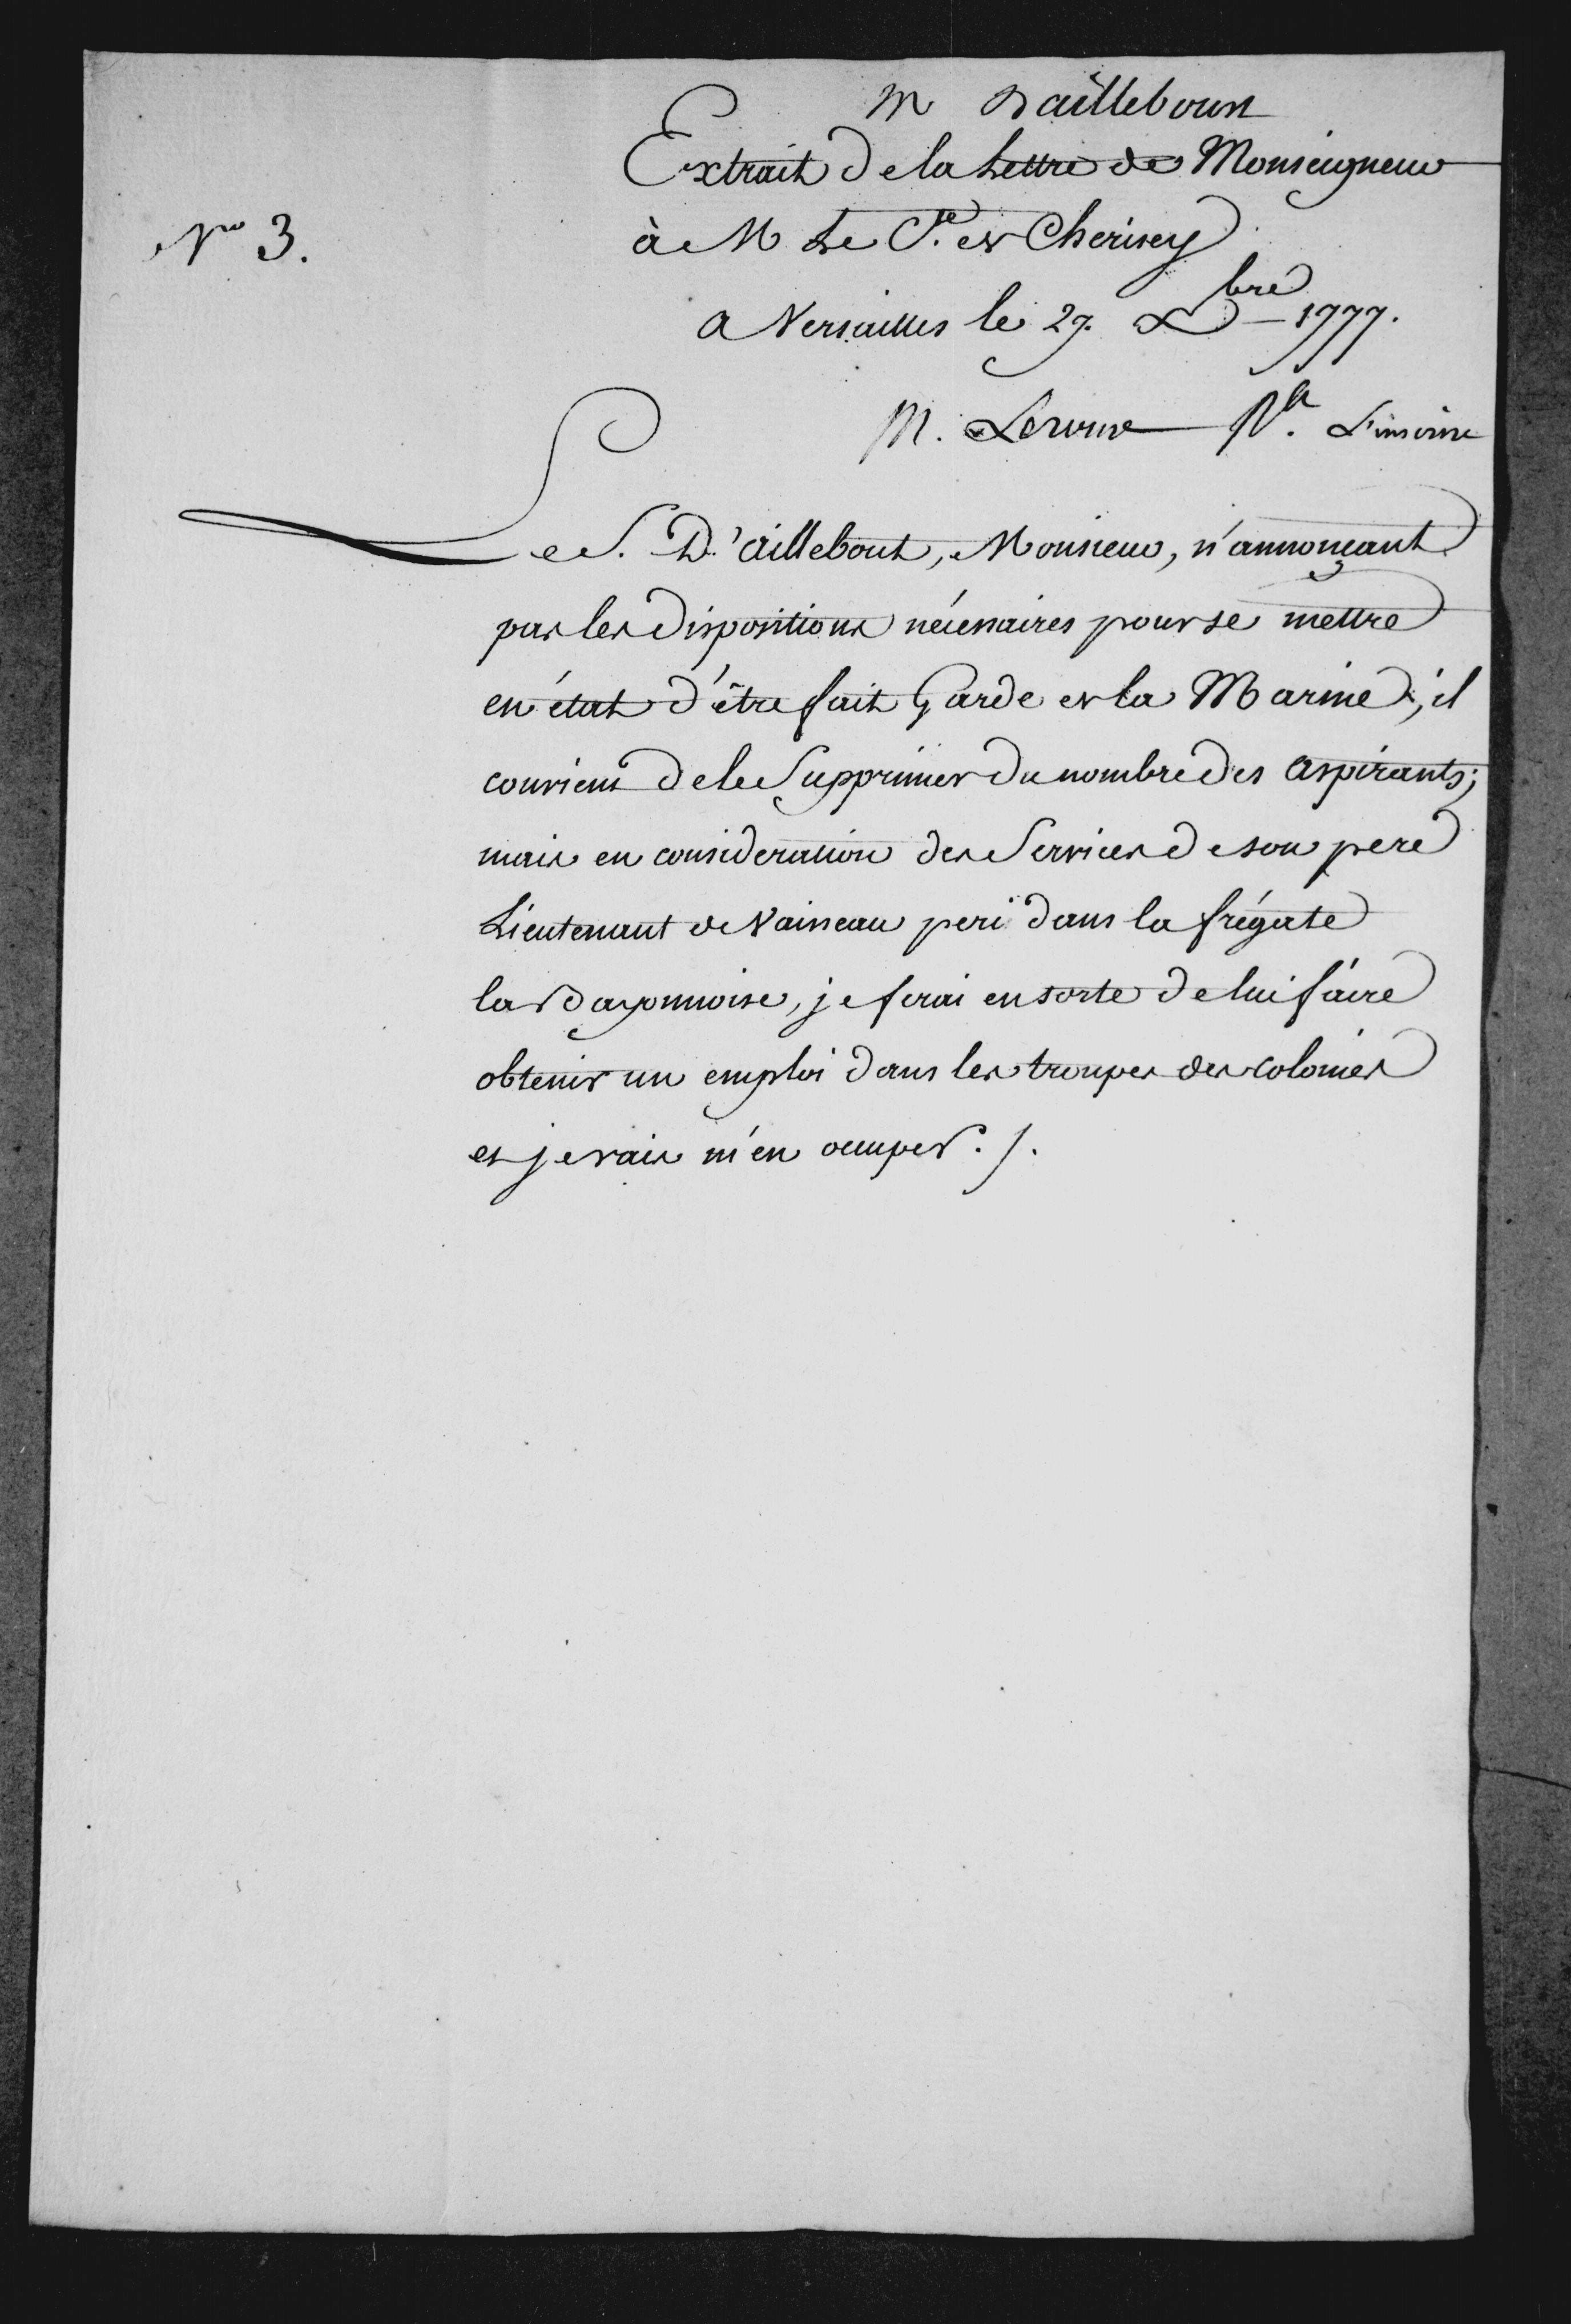 M Daillebout
Extrait de la Lettre de Monseigneur
N° 3.
à M Le Cte. de Cherisey
a Versailles le 27. Xbre 1777.
M.
Le S. D'aillebout, Monsieur, n'annonçant
pas les dispositions nécessaires pour se mettre
en état d'être fait Garde de la Marine, il
convient de le Supprimer du nombre des aspirants;
mais en consideration des Services de son pere
Lieutenant de Vaisseau peri dans la frégate
la Bayonnoise, je ferai en sorte de lui faire
obtenir un emploi dans les troupes des colonies
et je vais m'en occuper ./.